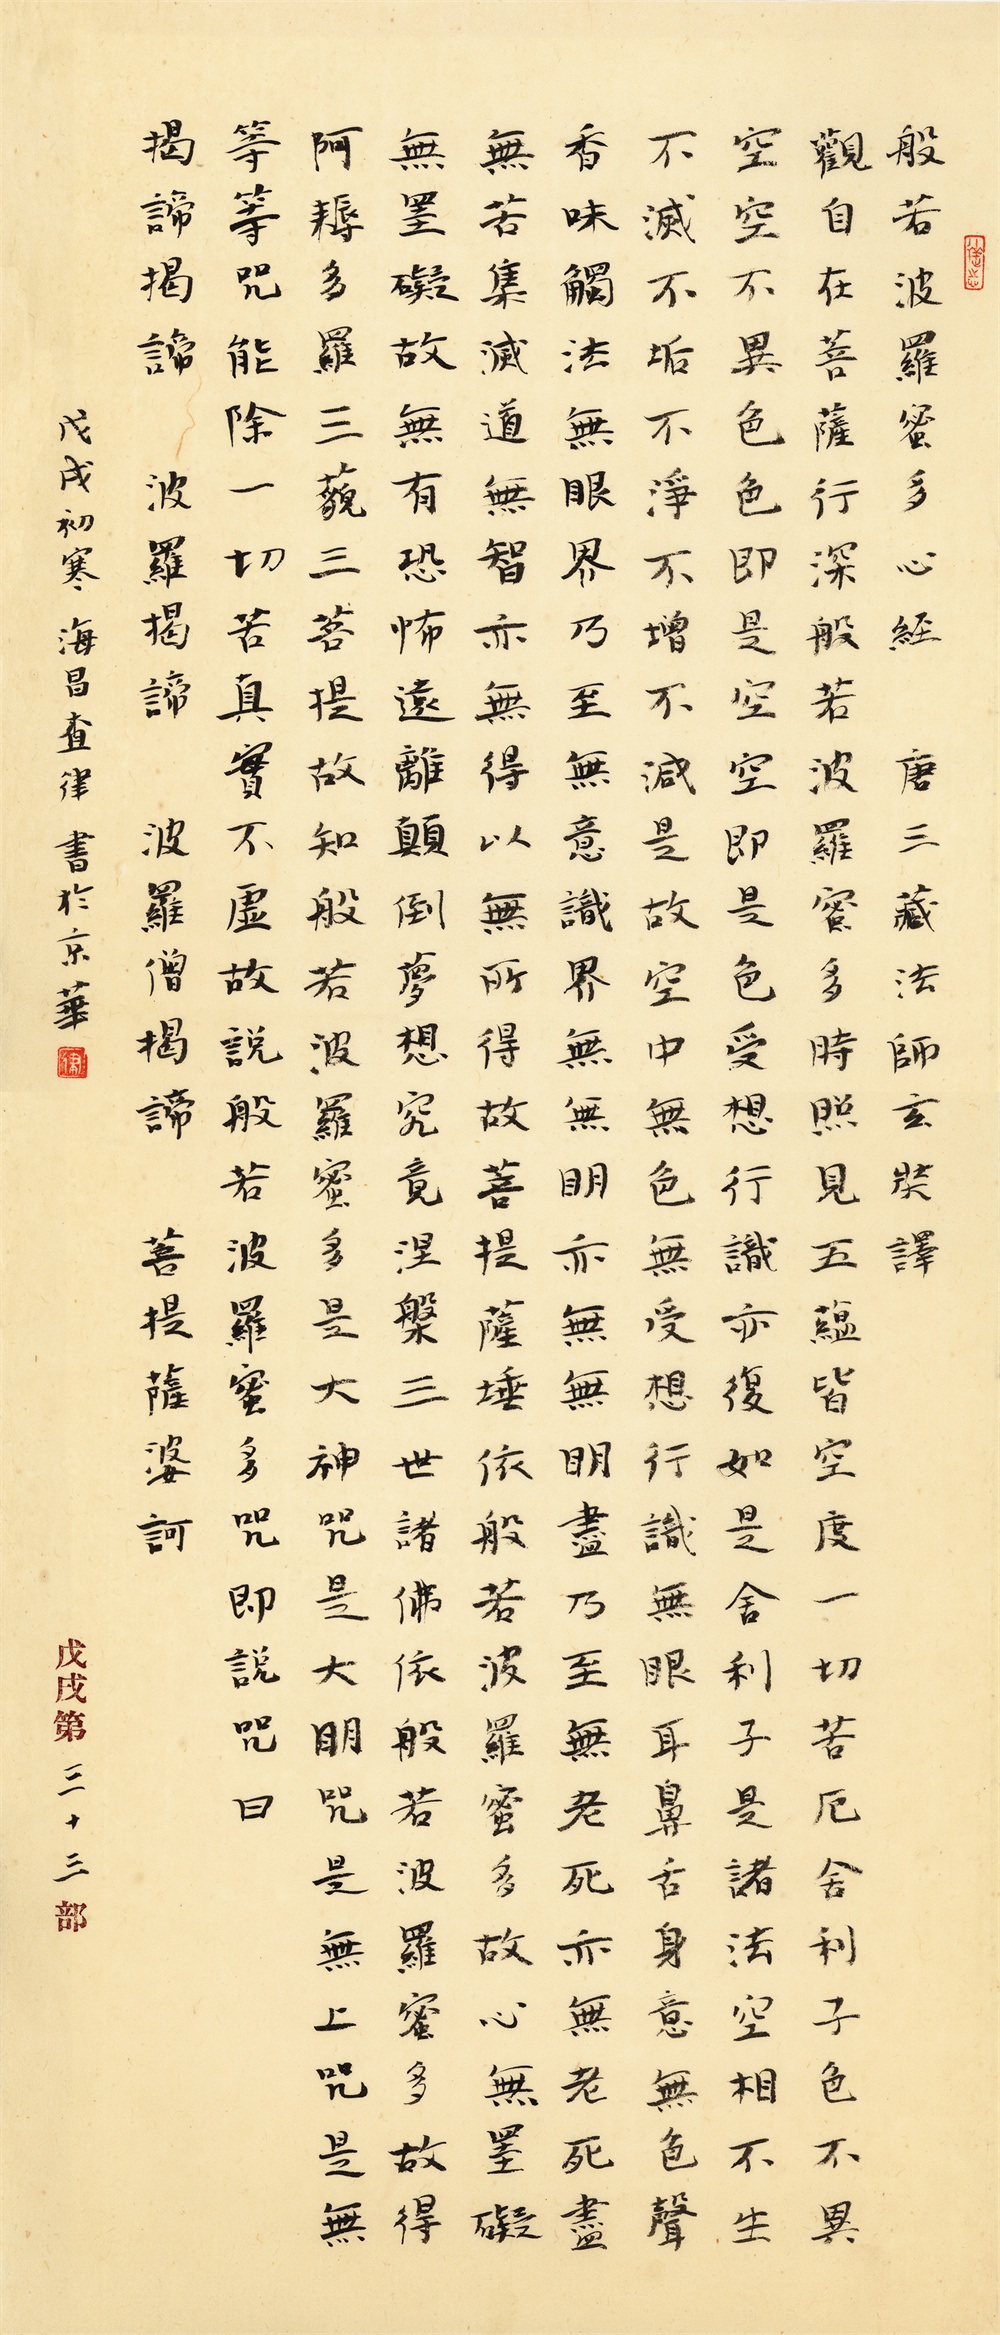 般若波羅蜜多心經 唐三藏法師玄奘譯
觀自在菩薩行深般若波羅蜜多時照見五蘊皆空度一切苦厄舍利子色不異
空空不異色色即是空空即是色受想行識亦復如是舍利子是諸法空相不生
不滅不垢不淨不增不減是故空中無色無受想行識無眼耳鼻舌身意無色聲
香味觸法無眼界乃至無意識界無無明亦無無明盡乃至無老死亦無老死盡
無苦集滅道無智亦無得以無所得故菩提薩埵依般若波羅蜜多故心無罣礙
無罣礙故無有恐怖遠離顛倒夢想究竟涅槃三世諸佛依般若波羅蜜多故得
阿耨多羅三藐三菩提故知般若波羅蜜多是大神咒是大明咒是無上咒是無
等等咒能除一切苦真實不虛故說般若波羅蜜多咒即說咒曰
揭諦揭諦 波羅揭諦 波羅僧揭諦 菩提薩婆訶
戊戌初寒海昌查律書於京華
戊戌第三十三部